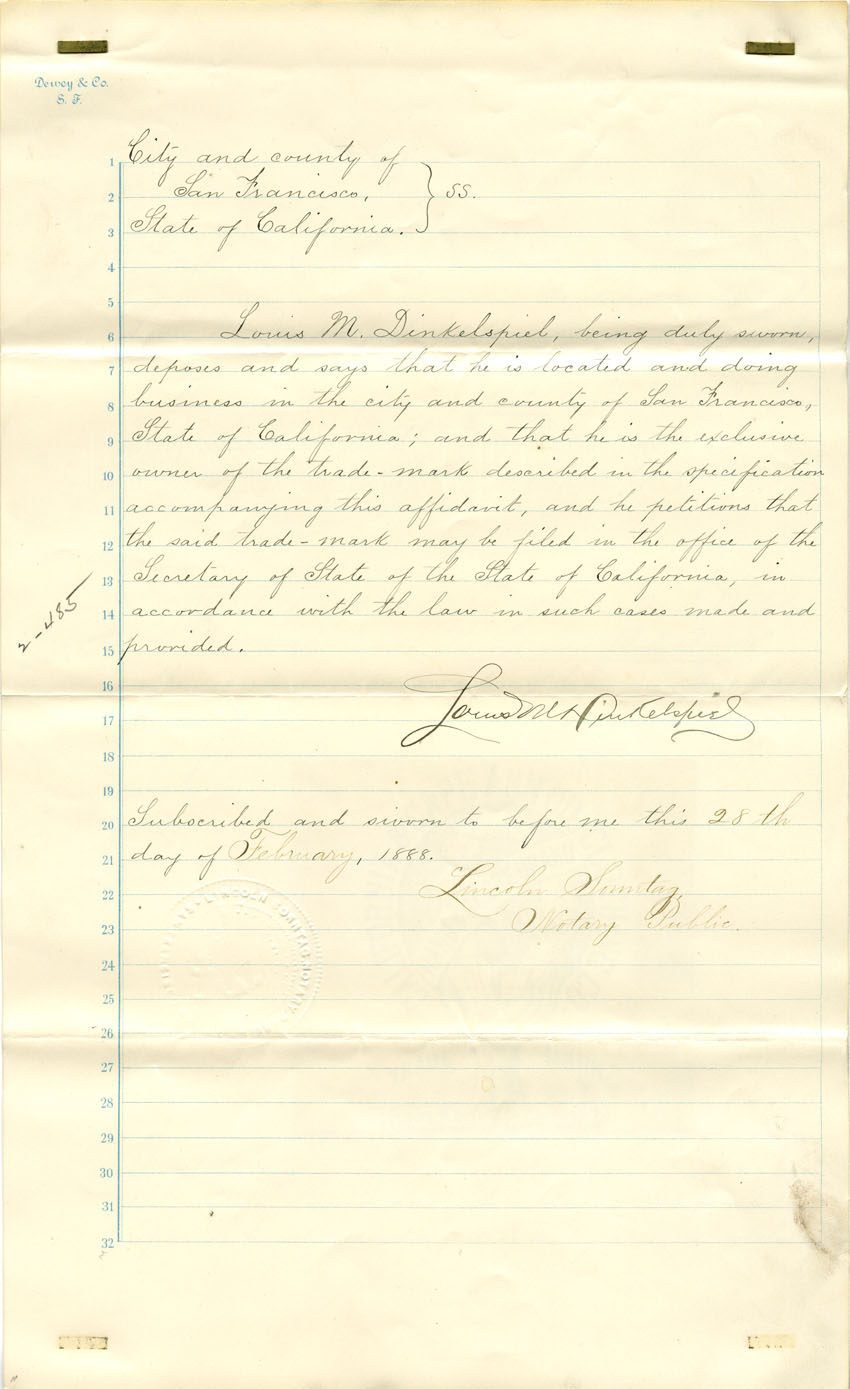 Dewey & Co.
S. F.
1 City and county of
2 San Francisco, } SS.
3 State of California.
4
5
6 Louis M. Dinkelspiel, being duly sworn,
7 deposes and says that he is located and doing
8 business in the city and county of San Francisco,
9 State of California; and that he is the exclusive
10 owner of the trade-mark described in the specification
11 accompanying this affidavit, and he petitions that
12 the said trade-mark may be filed in the office of the
13 Secretary of State of the State of California, in
14 accordance with the law in such cases made and
15 provided.
2-485
16
17 Louis M Dinkelspiel
18
19
20 Subscribed and sworn to before me this 28th
21 day of February, 1888.
22 Lincoln Sonntag,
23 Notary Public.
LINCOLN SONNTAG NOTARY
24
25
26
27
28
29
30
31
32